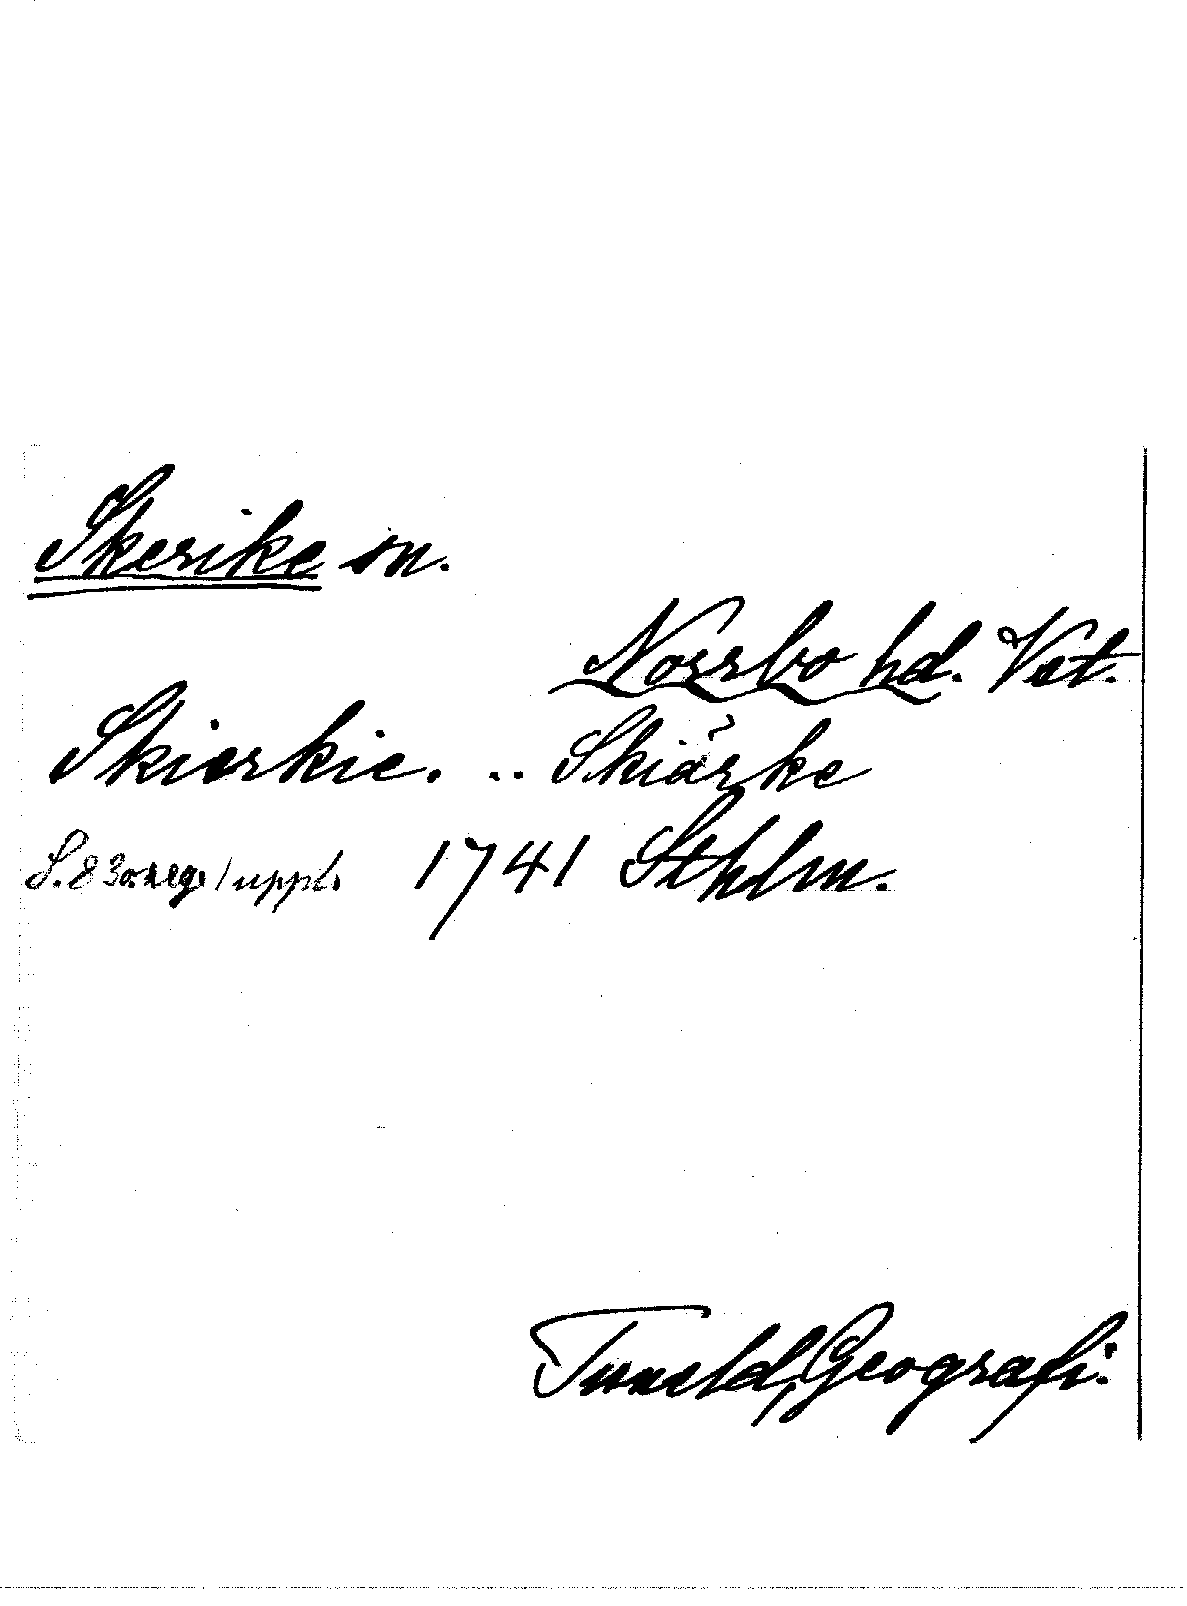 Skerike sn.
Norrbo hd. Vst.
Skierkie. .. Skiärke
S. 83 o. reg. 1 uppl. 1741 Sthlm.
Tuneld, Geografi.